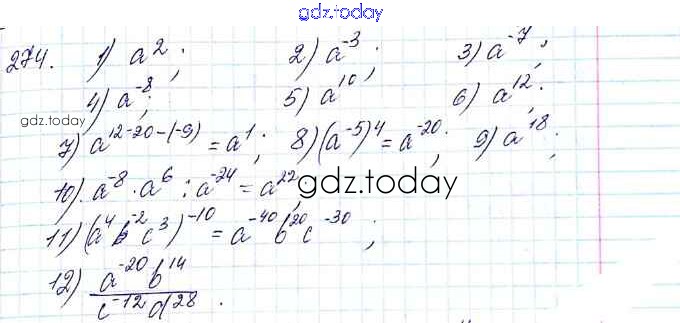 gdz.today
274. 1) a²; 2) a⁻³; 3) a⁻⁷;
4) a⁻⁸; 5) a¹⁰; 6) a¹²;
gdz.today
7) a¹²⁻²⁰⁻⁽⁻⁹⁾ = a¹; 8) (a⁻⁵)⁴ = a⁻²⁰; 9) a¹⁸;
10) a⁻⁸ · a⁶ : a⁻²⁴ = a²²
gdz.today
11) (a⁴b⁻²c³)⁻¹⁰ = a⁻⁴⁰b²⁰c⁻³⁰;
12) a⁻²⁰b¹⁴
c⁻¹²d²⁸.